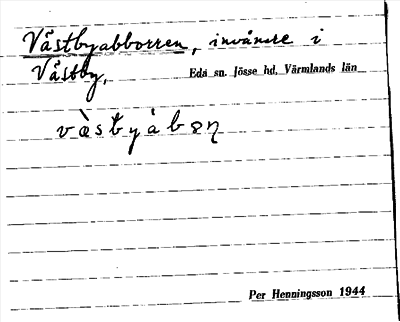 Västbyabborren, invånare i
Västby,
Eda sn. Jösse hd. Värmlands län
Per Henningsson 1944